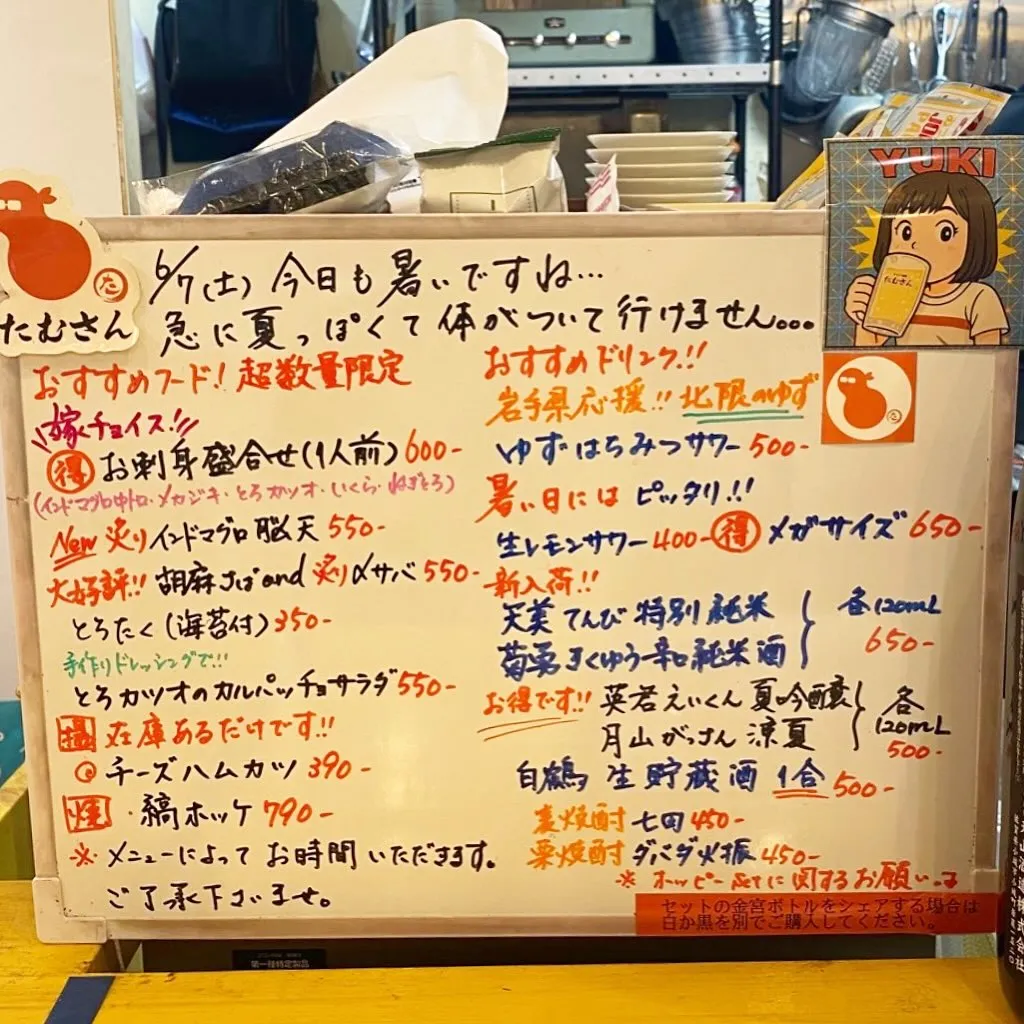 YUKI
たむさん
た
たむさん
6/7(土) 今日も暑いですね...
急に夏っぽくて体がついて行けません。。。
おすすめフード! 超数量限定
嫁チョイス!!
得 お刺身盛合せ(1人前) 600-
(インドマグロ中トロ・メカジキ・とろカツオ・いくら・ねぎとろ)
New 炙りインドマグロ脳天 550-
大好評!! 胡麻さばand 炙り〆サバ 550-
とろたく(海苔付) 350-
手作りドレッシングで!!
とろカツオのカルパッチョサラダ 550-
揚 在庫あるだけです!!
チーズハムカツ 390-
焼 縞ホッケ 790-
※ メニューによってお時間いただきます。
ご了承下さいませ。
おすすめドリンク!!
岩手県応援!! 北限のゆず
ゆずはちみつサワー 500-
暑い日には ピッタリ!!
生レモンサワー 400- 得 メガサイズ 650-
新入荷!!
天美 てんび 特別純米
菊勇 きくゆう 辛口純米酒
各120mL
650-
お得です!! 英君 えいくん 夏吟醸
月山 がっさん 涼夏
各
120mL
500-
白鶴 生貯蔵酒 1合 500-
焼酎 七田 450-
栗焼酎 ダバダ火振 450-
※ ホッピーSetに関するお願い
セットの金宮ボトルをシェアする場合は
白か黒を別でご購入してください。
第一種特定製品